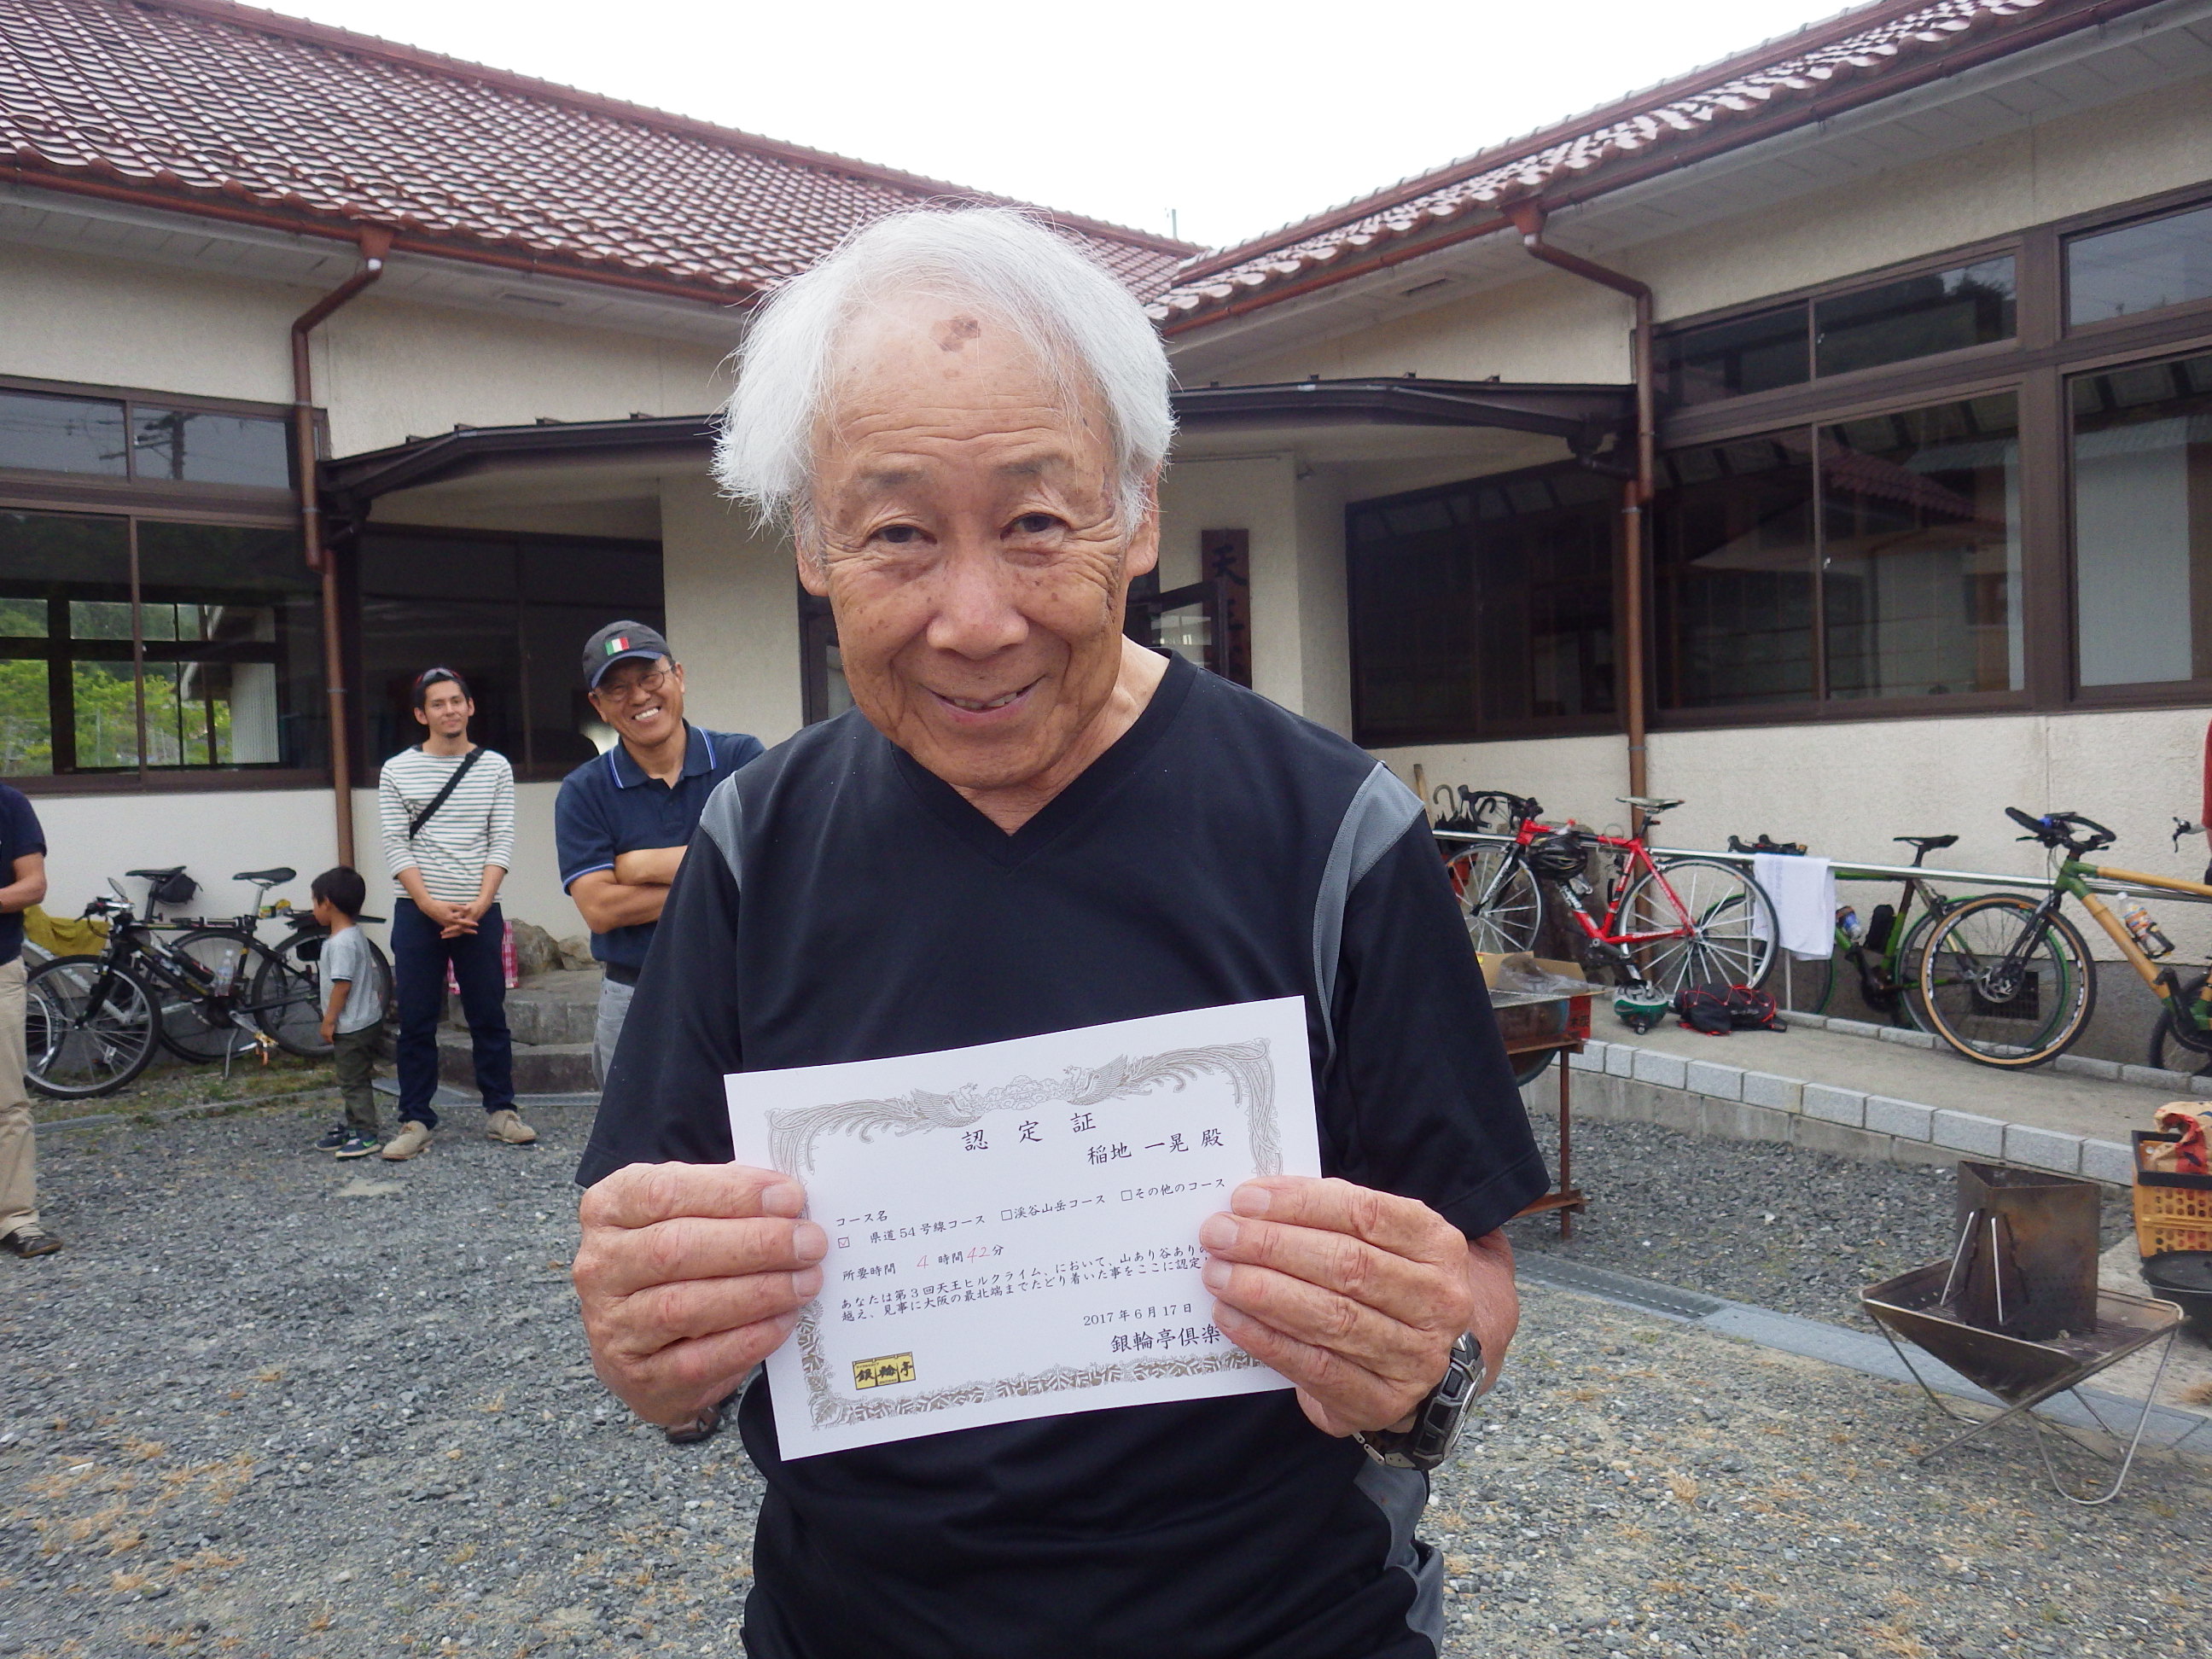 天
認 定 証
稲地 一晃 殿
コース名
☑ 県道54号線コース □渓谷山岳コース □その他のコース
所要時間 4 時間 42 分
あなたは第3回天王ヒルクライム、において、山あり谷ありの
越え、見事に大阪の最北端までたどり着いた事をここに認定
2017年6月17日
銀輪亭倶楽
銀輪亭